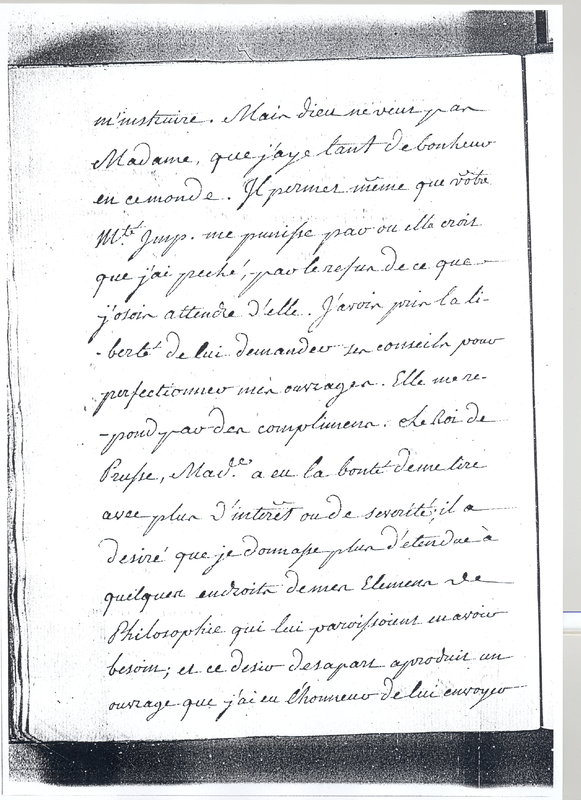 m'instruire. Mais dieu ne veut pas
Madame, que j'aye tant de bonheur
en ce monde. Il permet même que vôtre
M.té Imp. me punisse par ou elle croit
que j'ai peché, par le refus de ce que
j'osois attendre d'elle. J'avois pris la li-
-berté de lui demander ses conseils pour
perfectionner mes ouvrages. Elle me re-
-pond par des complimens. Le Roi de
Prusse, Mad.e a eu la bonté de me lire
avec plus d'interêt ou de severité; il a
desiré que je donnasse plus d'etendue à
quelques endroits de mes Elemens de
Philosophie qui lui paroissoient en avoir
besoin; et ce desir de sa part a produit un
ouvrage que j'ai eu l'honneur de lui envoyer